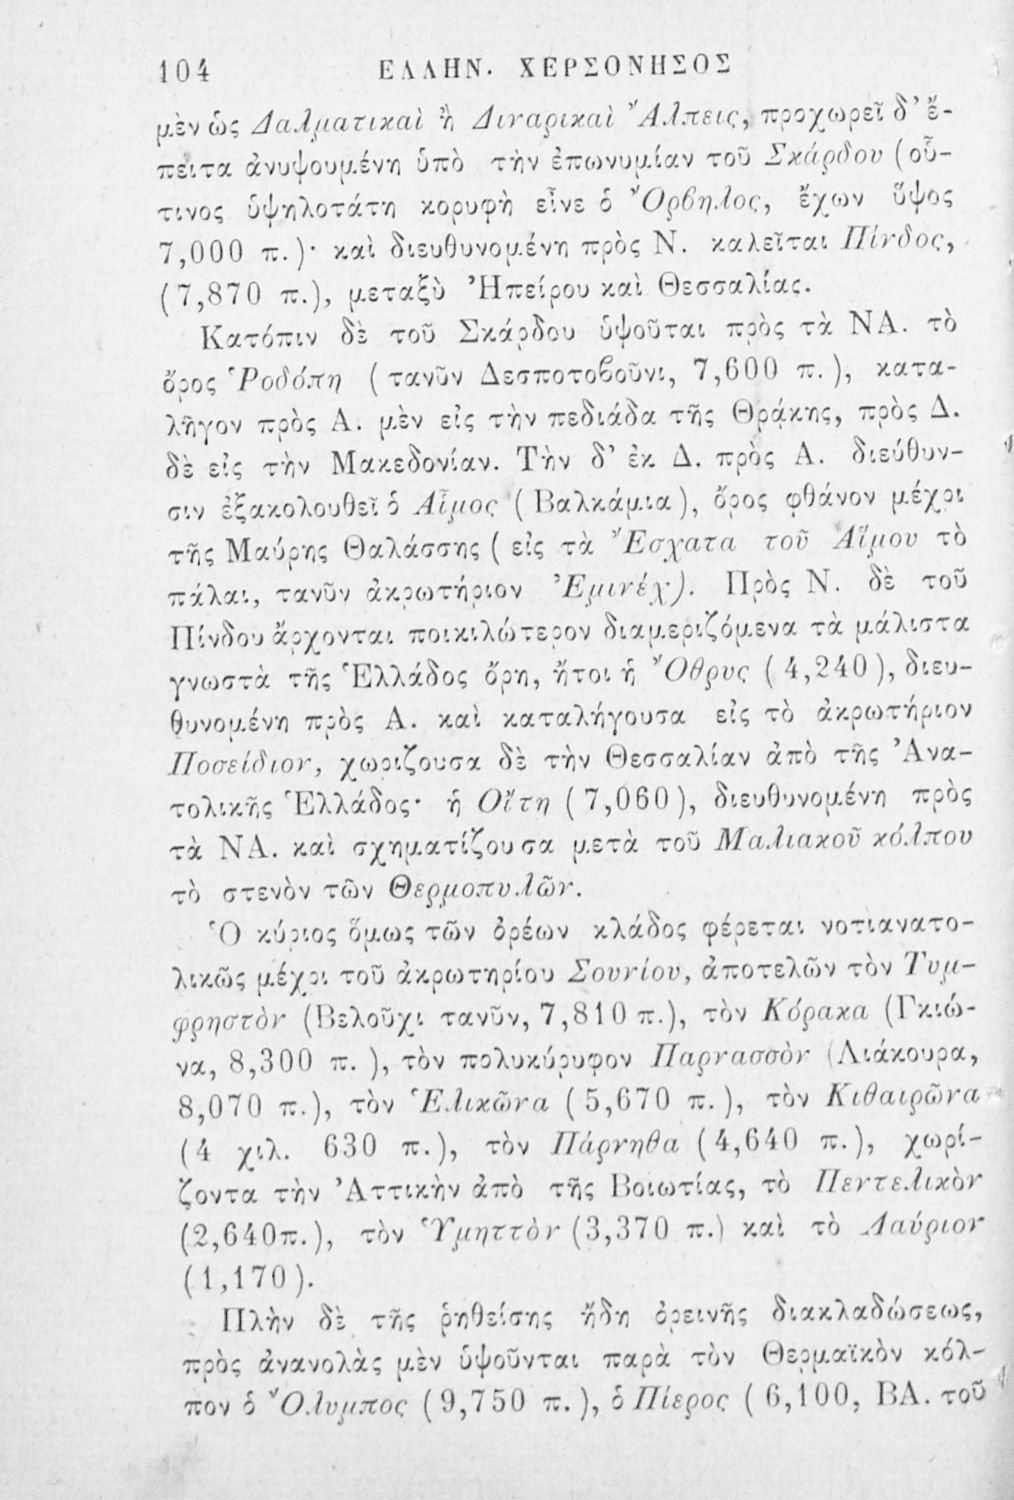 104 ΕΛΛΗΝ. ΧΕΡΣΟΝΗΣΟΣ
μὲν ὡς Δαλματικαὶ ἢ Διναρικαὶ Ἄλπεις, προχωρεῖ δ’ ἔ-
πειτα ἀνυψουμένη ὑπὸ τὴν ἐπωνυμίαν τοῦ Σκάρδου (οὗ-
τινος ὑψηλοτάτη κορυφὴ εἶνε ὁ Ὄρβηλος, ἔχων ὕψος
7,000 π.)· καὶ διευθυνομένη πρὸς Ν. καλεῖται Πίνδος,
(7,870 π.), μεταξὺ Ἠπείρου καὶ Θεσσαλίας.
Κατόπιν δὲ τοῦ Σκάρδου ὑψοῦται πρὸς τὰ ΝΑ. τὸ
ὄρος Ῥοδόπη (τανῦν Δεσποτοβοῦνι, 7,600 π.), κατα-
λῆγον πρὸς Α. μὲν εἰς τὴν πεδιάδα τῆς Θράκης, πρὸς Δ.
δὲ εἰς τὴν Μακεδονίαν. Τὴν δ’ ἐκ Δ. πρὸς Α. διεύθυν-
σιν ἐξακολουθεῖ ὁ Αἷμος (Βαλκάμια), ὄρος φθάνον μέχρι
τῆς Μαύρης Θαλάσσης (εἰς τὰ Ἔσχατα τοῦ Αἵμου τὸ
πάλαι, τανῦν ἀκρωτήριον Ἐμινέχ). Πρὸς Ν. δὲ τοῦ
Πίνδου ἄρχονται ποικιλώτερον διαμεριζόμενα τὰ μάλιστα
γνωστὰ τῆς Ἑλλάδος ὄρη, ἤτοι ἡ Ὄθρυς (4,240), διευ-
θυνομένη πρὸς Α. καὶ καταλήγουσα εἰς τὸ ἀκρωτήριον
Ποσείδιον, χωρίζουσα δὲ τὴν Θεσσαλίαν ἀπὸ τῆς Ἀνα-
τολικῆς Ἑλλάδος· ἡ Οἴτη (7,060), διευθυνομένη πρὸς
τὰ ΝΑ. καὶ σχηματίζουσα μετὰ τοῦ Μαλιακοῦ κόλπου
τὸ στενὸν τῶν Θερμοπυλῶν.
Ὁ κύριος ὅμως τῶν ὀρέων κλάδος φέρεται νοτιανατο-
λικῶς μέχρι τοῦ ἀκρωτηρίου Σουνίου, ἀποτελῶν τὸν Τυμ-
φρηστὸν (Βελοῦχι τανῦν, 7,810 π.), τὸν Κόρακα (Γκιώ-
να, 8,300 π.), τὸν πολυκόρυφον Παρνασσὸν (Λιάκουρα,
8,070 π.), τὸν Ἑλικῶνα (5,670 π.), τὸν Κιθαιρῶνα
(4 χιλ. 630 π.), τὸν Πάρνηθα (4,640 π.), χωρί-
ζοντα τὴν Ἀττικὴν ἀπὸ τῆς Βοιωτίας, τὸ Πεντελικὸν
(2,640π.), τὸν Ὑμηττὸν (3,370 π.) καὶ τὸ Λαύριον
(1,170).
Πλὴν δὲ τῆς ῥηθείσης ἤδη ὀρεινῆς διακλαδώσεως,
πρὸς ἀνανολὰς μὲν ὑψοῦνται παρὰ τὸν Θερμαϊκὸν κόλ-
πον ὁ Ὄλυμπος (9,750 π.), ὁ Πίερος (6,100, ΒΑ. τοῦ